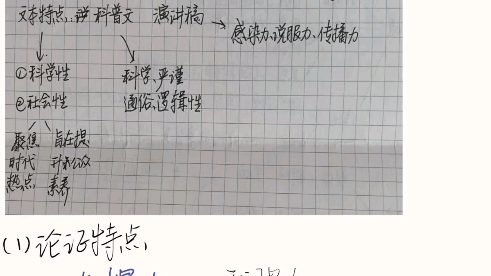 文本特点: 科普文 演讲稿 → 感染力、说服力、传播力
①科学性 科学、严谨
②社会性 通俗、逻辑性
聚焦 旨在提
时代 升公众
热点 素养
(1)论证特点